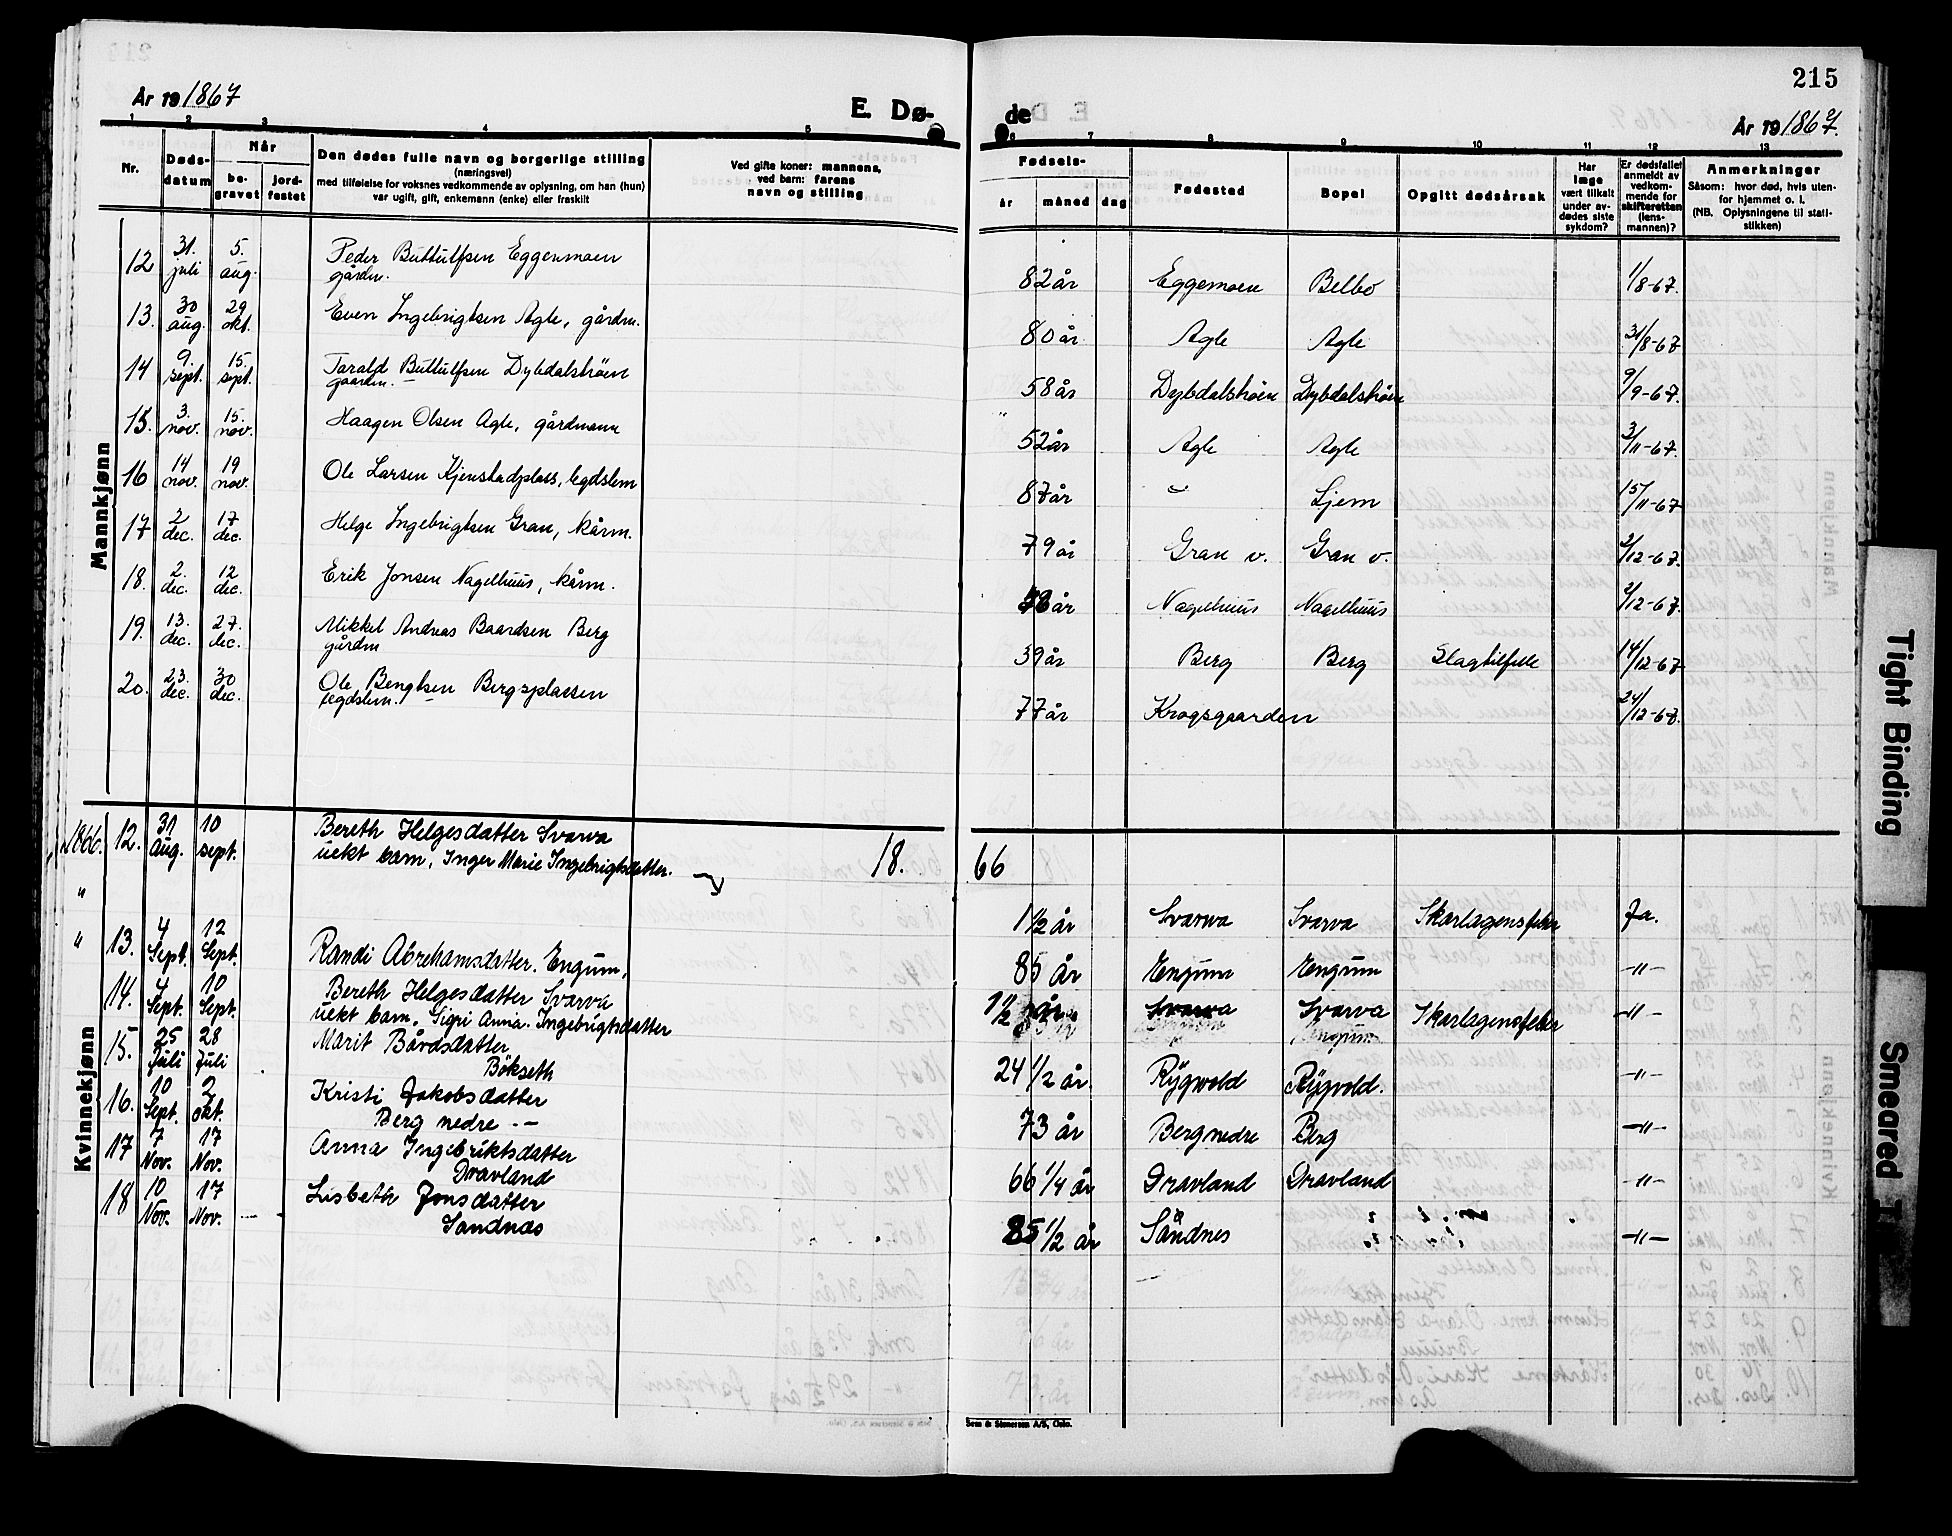 215
År 19 1867
E. Dø-
de
År 19 1867.
1 2 3 4 5 6 7 8 9 10 11 12 13
Nr.
Døds-
datum
Når
be-
gravet
jord-
festet
Den dødes fulle navn og borgerlige stilling
(næringsvei)
med tilføielse for voksnes vedkommende av oplysning, om han (hun)
var ugift, gift, enkemann (enke) eller fraskilt
Ved gifte koner: mannens,
ved barn: farens
navn og stilling
Fødsels-
år måned dag
Fødested
Bopel
Opgitt dødsårsak
Har
læge
vært tilkalt
under av-
dødes siste
sykdom?
Er dødsfallet
anmeldt av
vedkom-
mende for
skifteretten
(lens-
mannen)?
Anmerkninger
Såsom: hvor død, hvis uten-
for hjemmet o. l.
(NB. Oplysningene til stati-
stikken)
Mannkjønn
12 31. juli 5. aug. Peder Buttulfsen Eggenmoen
gårdm. 82 år Eggemoen Belbo 1/8-67.
13. 30 aug. 29 okt. Even Ingebrigtsen Agle, gårdm. 80 år Agle Agle 31/8-67
14 9. sept. 15. sept. Tarald Buttulfsen Dybdalshöen
gaardm. 58 år Dybdalshöen Dybdalshöen 9/9-67.
15. 3. nov. 15. nov. Haagen Olsen Agle, gårdmann 52 år Agle Agle 3/11-67.
16 14 nov. 19 nov. Ole Larsen Kjenstadplads, legdslem 87 år Ljem 15/11-67
17 2 dec. 17 dec. Helge Ingebrigtsen Gran, kårm. 79 år Gran v. Gran v. 2/12-67.
18. 2. dec. 12 dec. Erik Jonsen Nagelhuus, kårm. år Nagelhuus Nagelhuus 2/12-67.
19. 13. dec. 27. dec. Mikkel Andreas Baardsen Berg
gårdm 39 år Berg Berg Slagtilfelle 14/12-67
20. 23. dec. 30 dec. Ole Bengtsen Bergsplassen
legdslem. 77 år Krogsgaarden 24/12-67.
Kvinnekjønn
18. 66
1866. 12. 31 aug. 10 sept. Bereth Helgesdatter Svarva
uekt barn, Inger Marie Ingebrigtsdatter.
" 1 1/2 år Svarva Svarva Skarlagensfeber Ja.
" 13. 4 Sept. 12 Sept. Randi Abrehamsdatter. Engum, 85 år Engum Engum -"-
14. 4 Sept. 10 Sept. Bereth Helgesdatter Svarva
uekt barn, Sigri Anna. Ingebrigtsdatter 1 1/2 år Svarva Svarva Skarlagensfeber -"-
15. 25 Juli 28 Juli Marit Bårdsdatter
Bökseth 24 1/2 år Rygvold Rygvold. -"-
16. 10 Sept. 2 okt. Kristi Jakobsdatter
Berg nedre 73 år Berg nedre Berg -"-
17 7 Nov. 17 Nov. Anna Ingebriktsdatter
Dravland 66 1/4 år Dravland Dravland -"-
18 10 Nov. 17 Nov. Lisbeth Jonsdatter
Sandnæs 85 1/2 år Sandnes -"-
Sem & Stenersen A/S, Oslo.
Tight Binding
Smeared